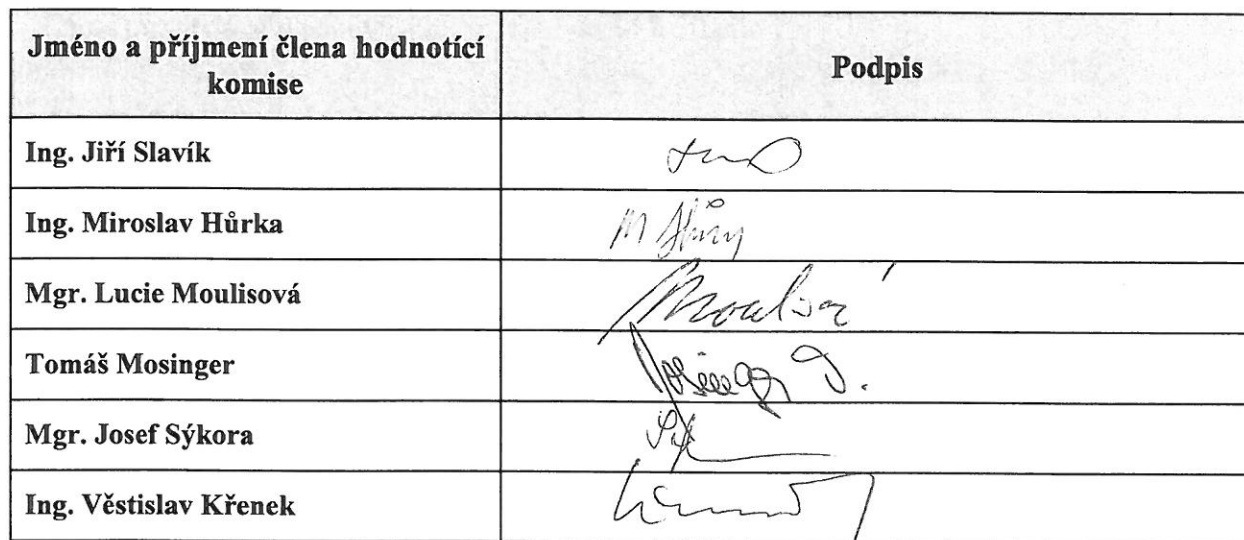 Jméno a příjmení člena hodnotící
komise
Podpis
Ing. Jiří Slavík
Ing. Miroslav Hůrka
Mgr. Lucie Moulisová
Tomáš Mosinger
Mgr. Josef Sýkora
Ing. Věstislav Křenek